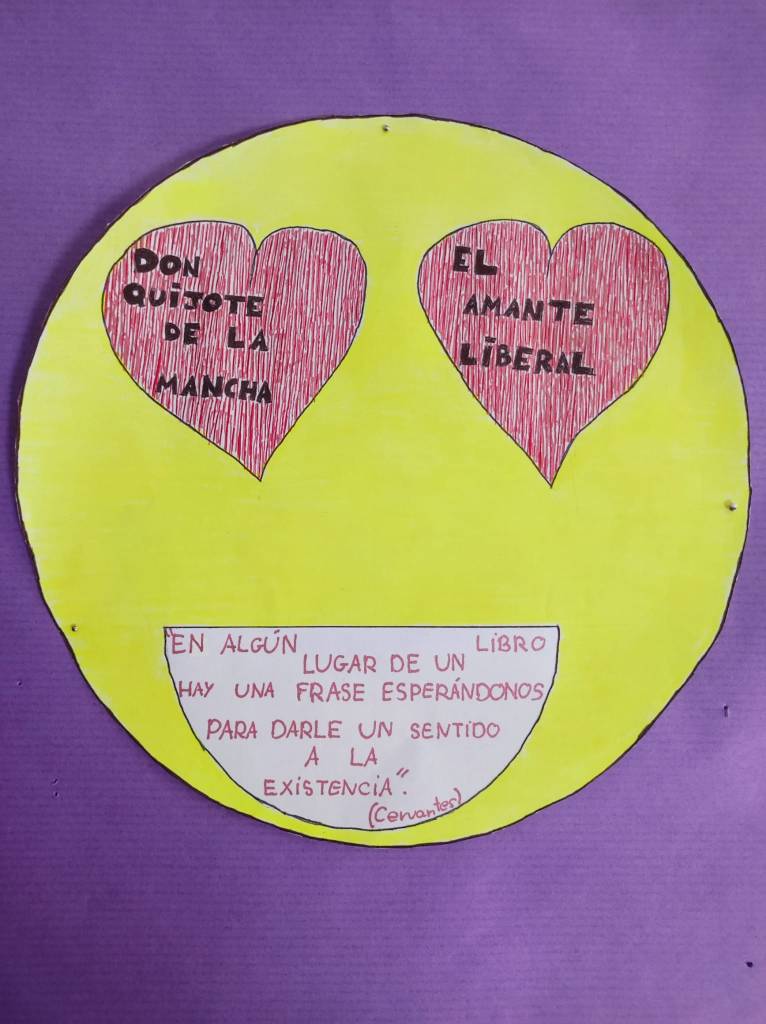 DON
QUIJOTE
DE LA
MANCHA
EL
AMANTE
LIBERAL
"EN ALGÚN LIBRO
LUGAR DE UN
HAY UNA FRASE ESPERÁNDONOS
PARA DARLE UN SENTIDO
A LA
EXISTENCIA".
(Cervantes)